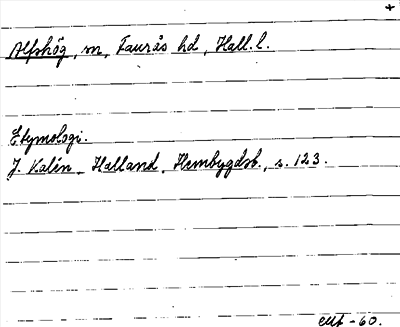 +
Alfshög, m, Faurås hd, Hall. l.
Etymologi.
J. Kalén, Halland, Hembygdsb., s. 123.
-60.